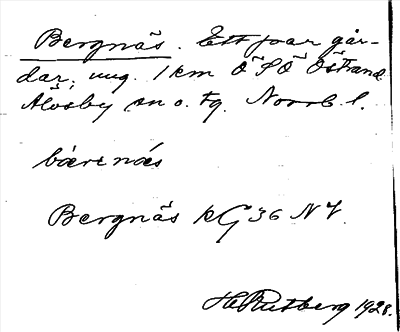 Bergnäs. Ett par går-
dar, ung. 1 km ÖSÖ Östrand.
Älvsby sn o. tg. Norrb. l.
bærrnäs
Bergnäs KG 36 NV.
H. Rutberg 1928.